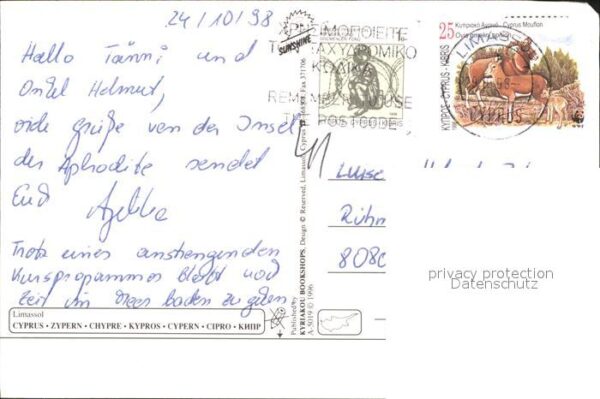 24/10/98
Hallo Tanni und
Onkel Helmut,
viele Grüße von der Insel
der Aphrodite sendet
Euch
Trotz eines anstrengenden
Kursprogrammes bleibt noch
Zeit im Meer baden zu gehen
Limassol
CYPRUS • ZYPERN • CHYPRE • KYPROS • CYPERN • CIPRO • КИПР
Published by
KYRIAKOU BOOKSHOPS, Design © Reserved, Limassol, Cyprus Fax 371706
A-5019 © 1996
SUNSHINE
ΧΡΗΣΙΜΟΠΟΙΕΙΤΕ
ΤΑΧΥΔΡΟΜΙΚΟ
ΚΩΔΙΚΑ
REMEMBER USE
POSTCODE
25
Κυπριακό Αγρινό - Cyprus Mouflon
ΚΥΠΡΟΣ - CYPRUS - KIBRIS
CYPRUS
Luise
808
privacy protection
Datenschutz